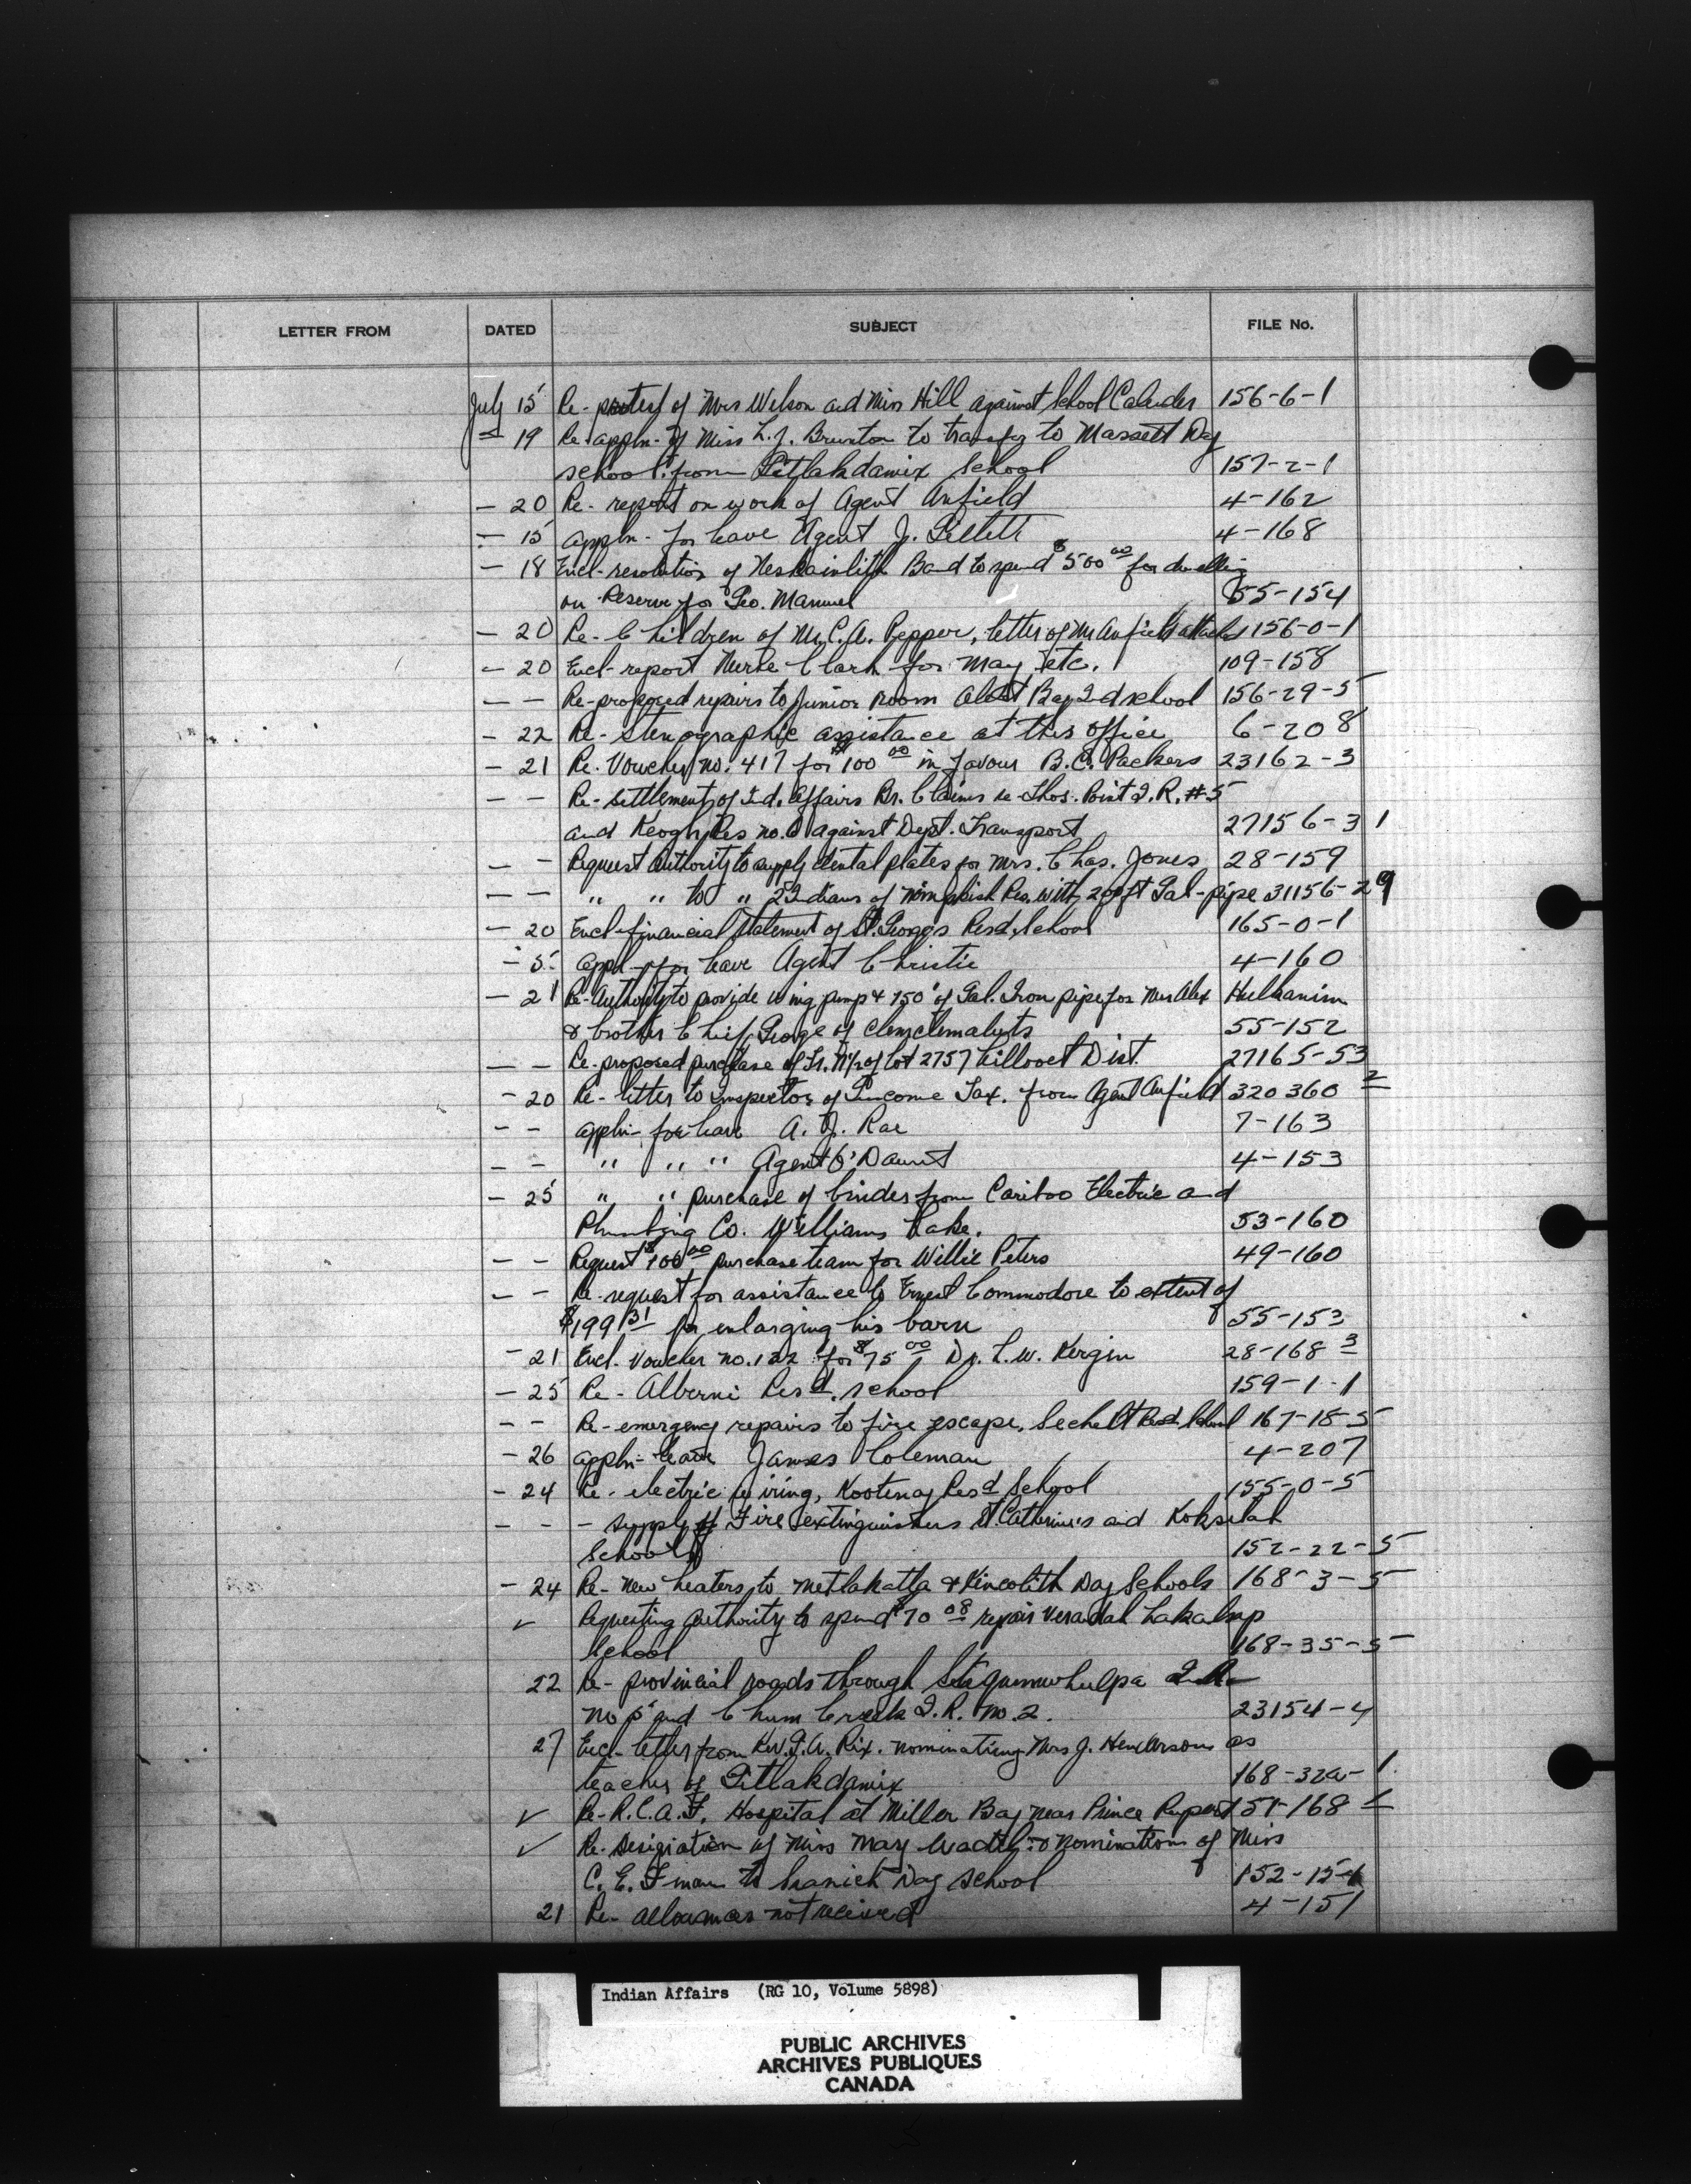 LETTER FROM DATED SUBJECT FILE No.
July 15 Re- protest of Mrs Wilson and Miss Hill against School Calender 156-6-1
- 19 Re appln- of Miss L.J. Brunton to transfer to Massett Day
school from Gitlakdamix School 157-2-1
- 20 Re- report on work of Agent Anfield 4-162
- 15 appln- for leave Agent J. Gillett 4-168
- 18 Encl- resolution of Neskainlith Band to spend $500 00 for dwelling
on Reserve for Geo. Manuel 55-154
- 20 Re- Children of Mr. C.A. Pepper, letter of Mr Anfield attached 156-0-1
- 20 Encl- report Nurse Clark for May etc. 109-158
- - Re- proposed repairs to Junior room Alert Bay Ind school 156-29-5
- 22 Re- stenographic assistance at this office 6-208
- 21 Re. Voucher no. 417 for $100 00 in favour B.C. Packers 23162-3
- - Re- settlement of Ind. Affairs Br. Claims re Thos. Point I.R. #5
and Keogh Res no. against Dept. Transport 27156-31
- - Request authority to supply dental plates for Mrs. Chas. Jones 28-159
- - " " to " Indians of Nimpkish Res. with 200 ft Gal-pipe 31156-29
- 20 Encl- financial statement of St. Georges Resd. School 165-0-1
- 5- appln- for leave Agent Christie 4-160
- 21 Re- Authority to provide wing pump & 150' of Gal. Iron pipe for Mrs Alex Hulhanim
& brother Chief George of Clemclemaluts 55-152
- - Re- proposed purchase of Fr. N½ of Lot 2757 Lillooet Dist. 27165-53
- 20 Re- letter to Inspector of Income Tax. from Agent Anfield 320360 2
- - appln- for leave A. J. Rae 7-163
- - " " " Agent O'Daunt 4-153
- 25 " " purchase of binder from Cariboo Electric and
Plumbing Co. Williams Lake. 53-160
- - Request $100 00 purchase team for Willie Peters 49-160
- - Re- request for assistance to Ernest Commodore to extent of
$199 31 for enlarging his barn 55-153
- 21 Encl. Voucher no. 122 for $75 00 Dr. L.W. Kergin 28-168 3
- 25 Re- Alberni Resd. school 159-1-1
- - Re- emergency repairs to fire escape, Sechelt Resd. School 167-18-5
- 26 appln- leave James Coleman 4-207
- 24 Re- electric wiring, Kootenay Resd School 155-0-5
- - - supply of Fire extinguishers St. Catherines and Koksilah
Schools 152-22-5
- 24 Re- New heaters to Metlakatla & Kincolith Day Schools 168-3-5
✓ Requesting authority to spend $70 08 repair verandah Lakalsap
School 168-35-5
22 Re- provincial roads through I.R.
No 5 and Chum Creek I.R. No. 2. 23154-4
27 Encl- letter from Rev. G.A. Rix. nominating Mrs J. Henderson as
teacher of Gitlakdamix 168-32a-1
✓ Re- R.C.A.F. Hospital at Miller Bay near Prince Rupert 51-168
✓ Re- resignation of Miss Mary & nomination of Miss
C.E. to Saanich Day School 152-15-1
21 Re- allowances not received 4-151
Indian Affairs (RG 10, Volume 5898)
PUBLIC ARCHIVES
ARCHIVES PUBLIQUES
CANADA